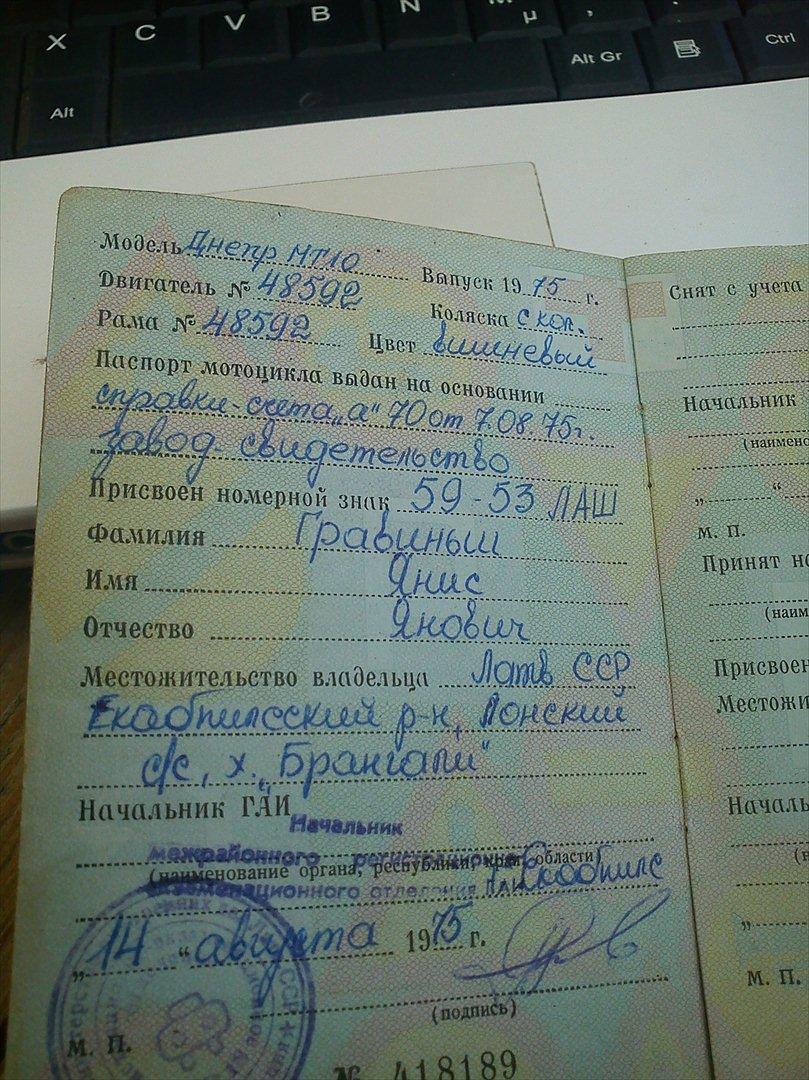 X C V B N M µ ,
Alt Alt Gr Ctrl
Модель Днепр МТ10 Выпуск 1975 г.
Двигатель № 48592 Коляска с кол.
Рама № 48592 Цвет вишневый
Паспорт мотоцикла выдан на основании
справки-счета „а" 70 от 7.08.75г.
завод. свидетельство
Присвоен номерной знак 59-53 ЛАШ
Фамилия Гравиньш
Имя Янис
Отчество Янович
Местожительство владельца Латв ССР
Екабпилсский р-н,
с/с, х. „Брангали"
Начальник ГАИ
Начальник
межрайонного регистрационно
(наименование органа, республики, края, области)
экзаменационного отделения ГАИ г. Екабпилс
„14" августа 1975 г.
(подпись)
М. П.
№ 418189
Снят с учета
Начальник
(наимено
„ "
м. п.
Принят на
(наим
Присвоен
Местожи
Началь
„
м. п.